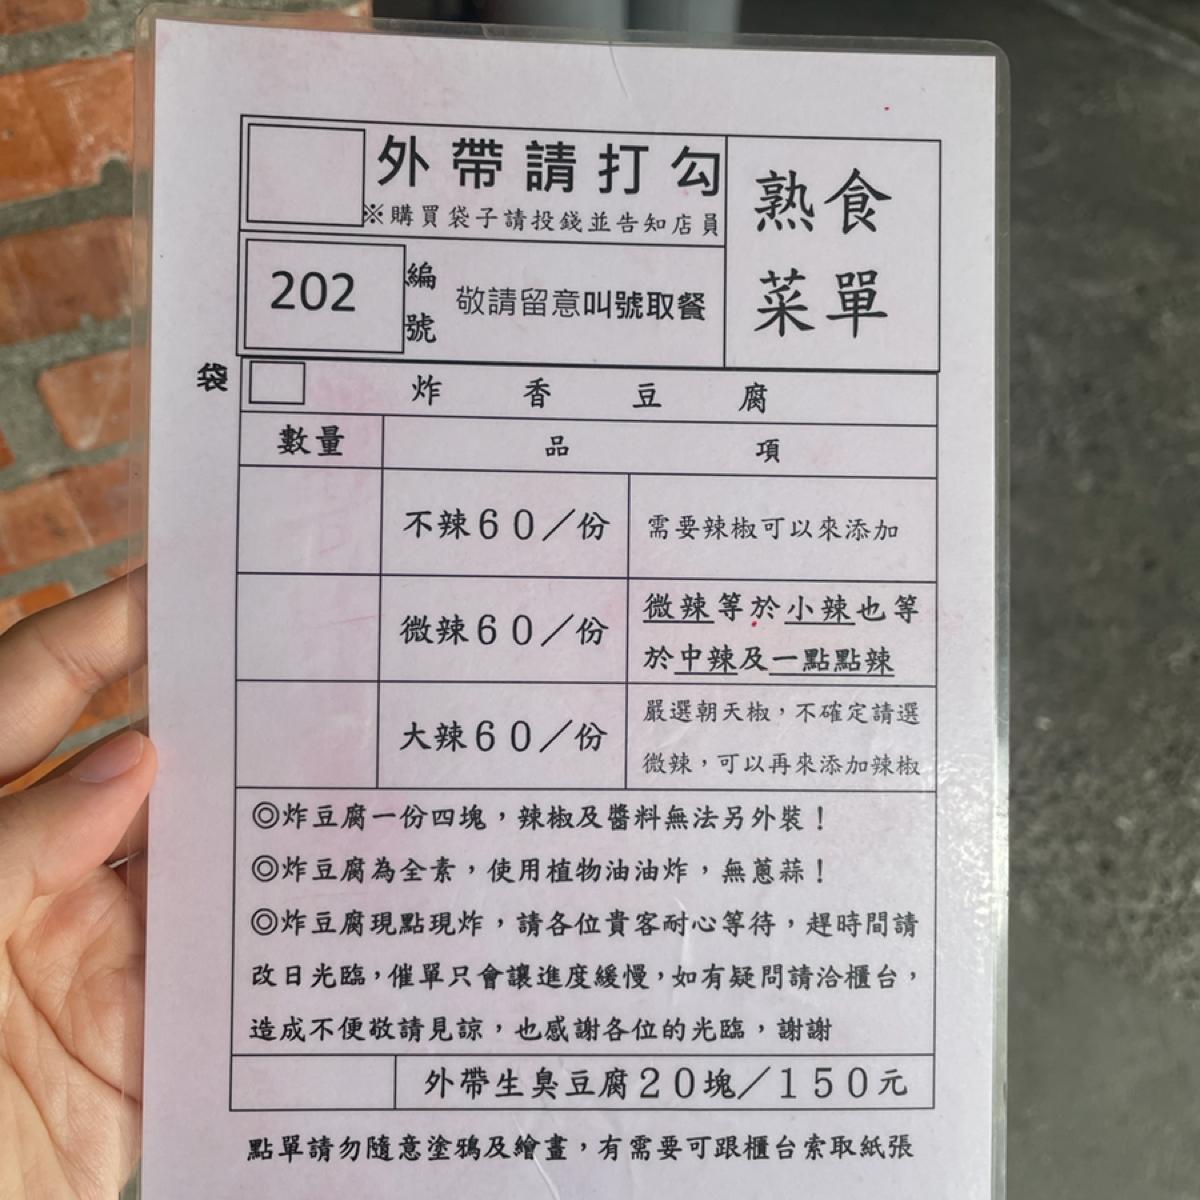 外帶請打勾
※購買袋子請投錢並告知店員
熟食
菜單
202
編號
敬請留意叫號取餐
袋
炸香豆腐
數量
品項
不辣60／份
需要辣椒可以來添加
微辣60／份
微辣等於小辣也等
於中辣及一點點辣
大辣60／份
嚴選朝天椒，不確定請選
微辣，可以再來添加辣椒
◎炸豆腐一份四塊，辣椒及醬料無法另外裝！
◎炸豆腐為全素，使用植物油油炸，無蔥蒜！
◎炸豆腐現點現炸，請各位貴客耐心等待，趕時間請
改日光臨，催單只會讓進度緩慢，如有疑問請洽櫃台，
造成不便敬請見諒，也感謝各位的光臨，謝謝
外帶生臭豆腐20塊／150元
點單請勿隨意塗鴉及繪畫，有需要可跟櫃台索取紙張